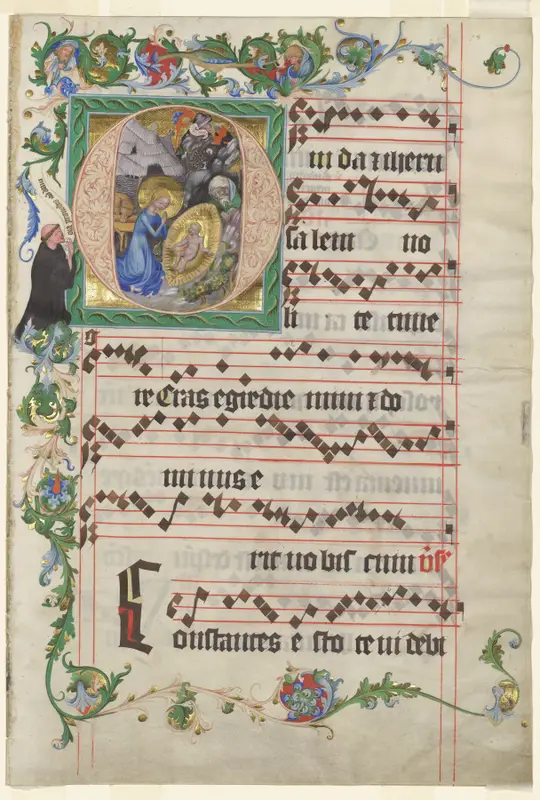 O
iu da et iheru
sa lem no
li te time
re Cras egredie mini et do
minus e
rit uo bis cum v̄s
Constantes e sto te ui debi